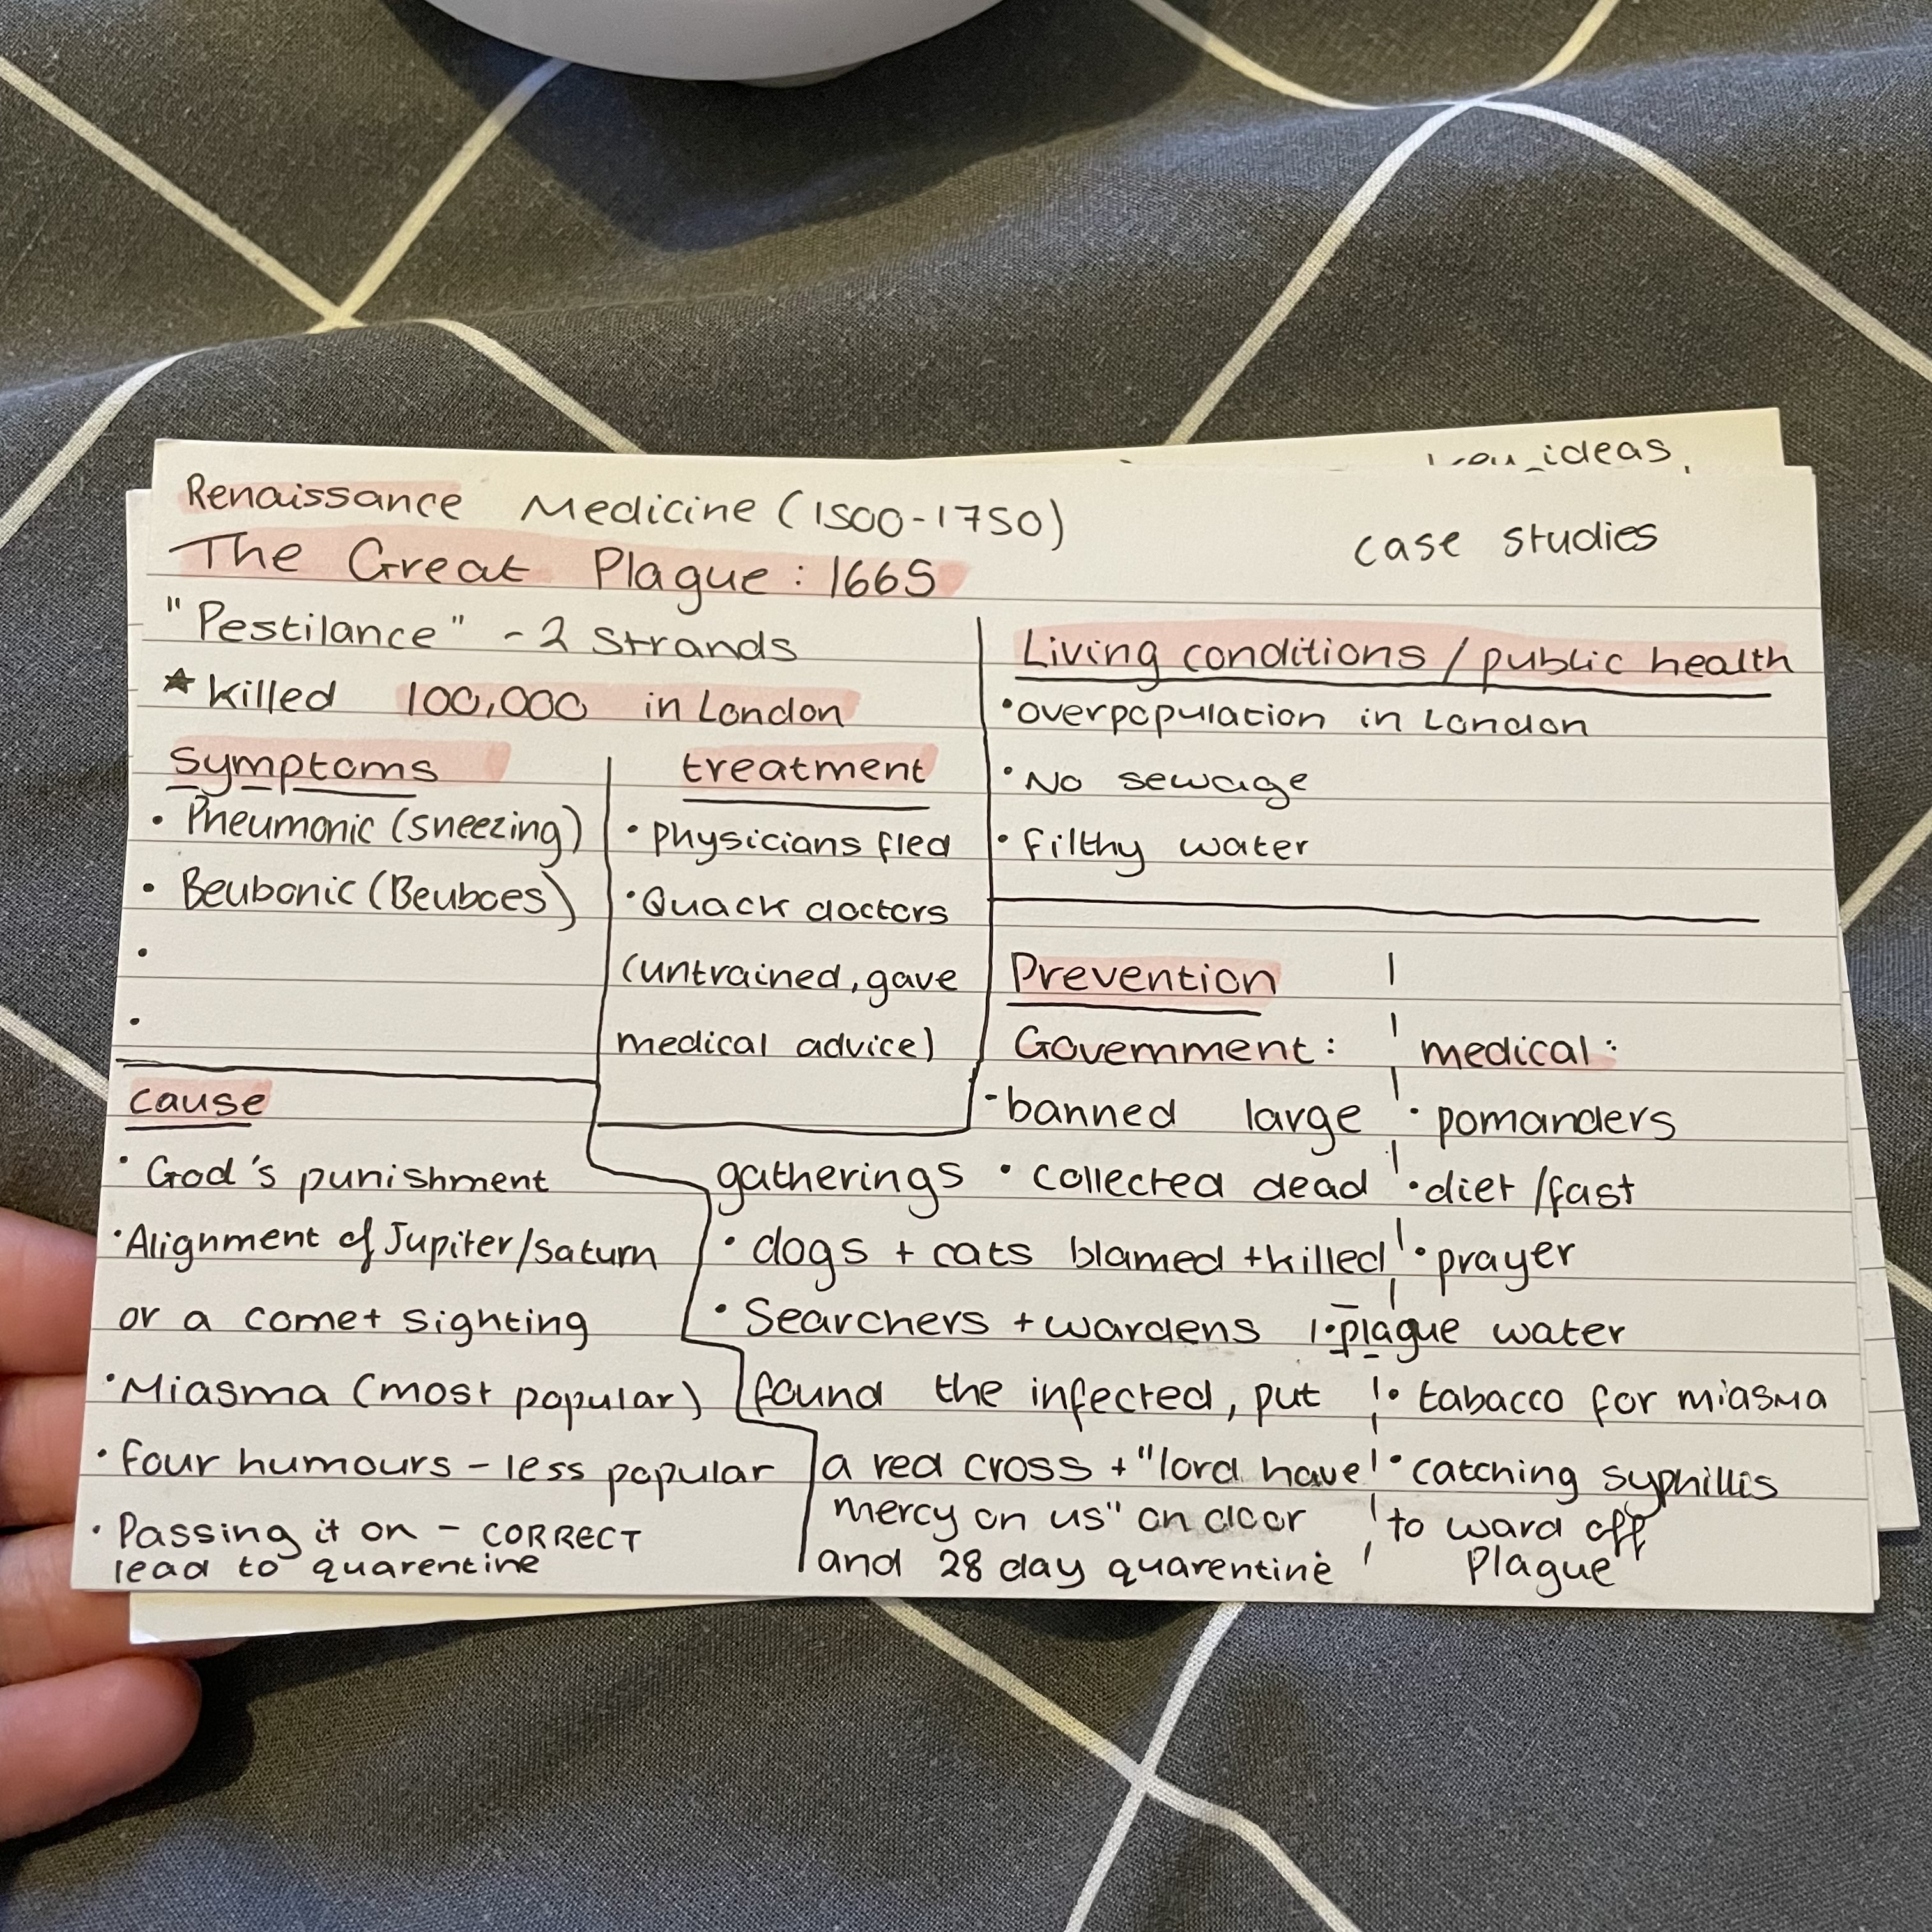 ideas,
Renaissance Medicine (1500-1750)
case studies
The Great Plague: 1665
"Pestilance" - 2 strands
★ killed 100,000 in London
symptoms
• Pneumonic (sneezing)
• Beubonic (Beuboes)
•
•
treatment
• physicians fled
• Quack doctors
(untrained, gave
medical advice)
Living conditions / public health
• overpopulation in London
• No sewage
• filthy water
cause
• God's punishment
• Alignment of Jupiter/saturn
or a comet sighting
• Miasma (most popular)
• four humours - less popular
• Passing it on - CORRECT
lead to quarentine
Prevention
Government:
• banned large
gatherings • collected dead
• dogs + cats blamed + killed
• Searchers + wardens
found the infected, put
a red cross + "lord have
mercy on us" on door
and 28 day quarentine
medical:
• pomanders
• diet /fast
• prayer
• plague water
• tabacco for miasma
• catching syphillis
to ward off
Plague